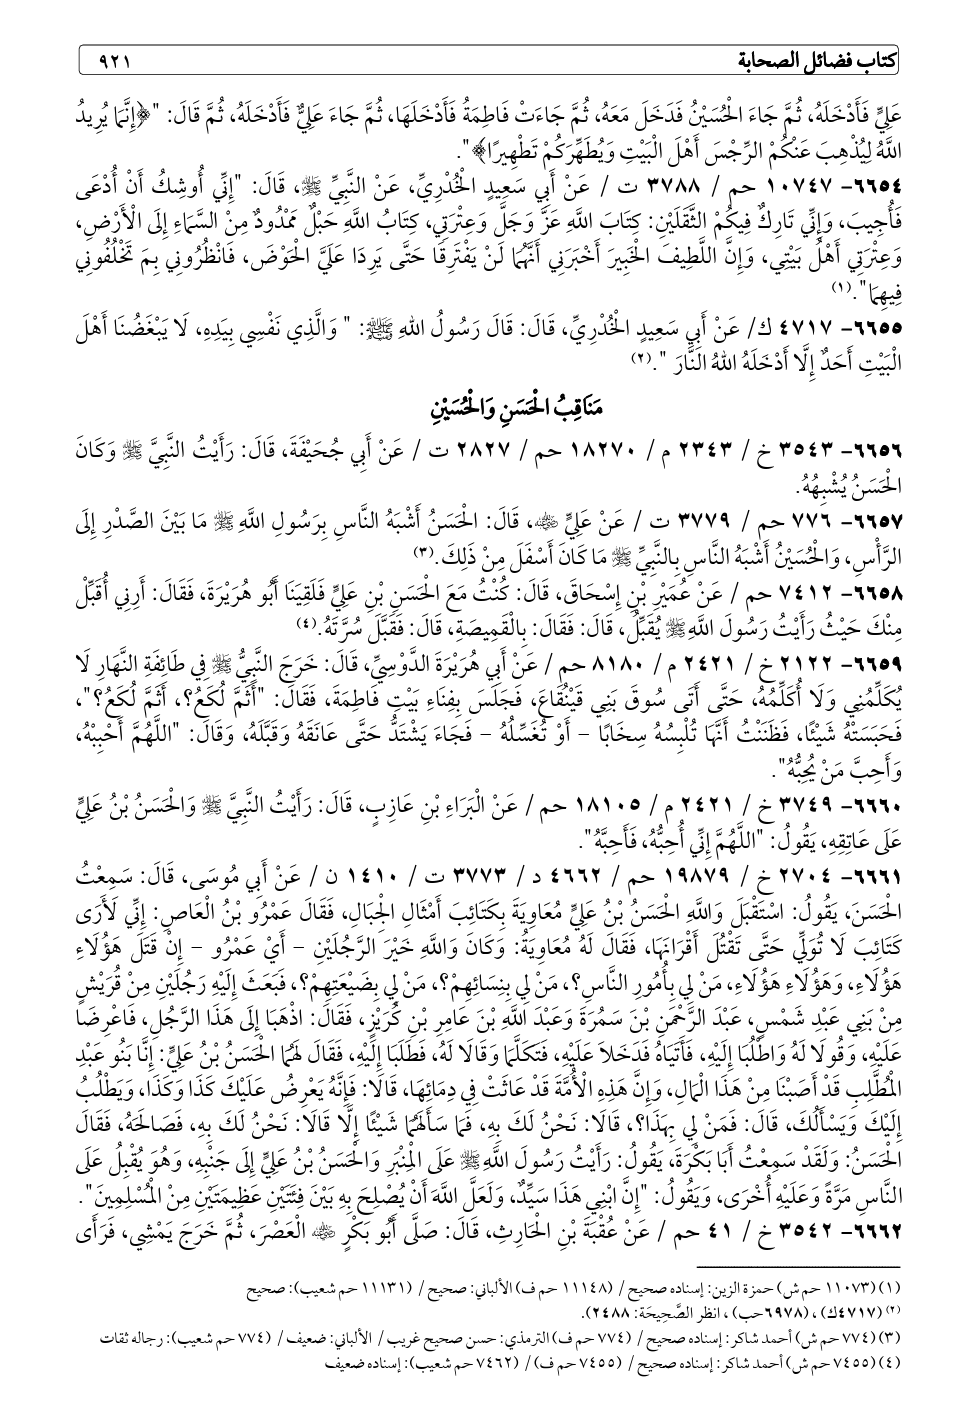 كتاب فضائل الصحابة ٩٢١
عَلِيٍّ فَأَدْخَلَهُ، ثُمَّ جَاءَ الْحُسَيْنُ فَدَخَلَ مَعَهُ، ثُمَّ جَاءَتْ فَاطِمَةُ فَأَدْخَلَهَا، ثُمَّ جَاءَ عَلِيٌّ فَأَدْخَلَهُ، ثُمَّ قَالَ: "﴿إِنَّمَا يُرِيدُ
اللَّهُ لِيُذْهِبَ عَنْكُمْ الرِّجْسَ أَهْلَ الْبَيْتِ وَيُطَهِّرَكُمْ تَطْهِيرًا﴾".
٦٦٥٤- ١٠٧٤٧ حم / ٣٧٨٨ ت / عَنْ أَبِي سَعِيدٍ الْخُدْرِيِّ، عَنْ النَّبِيِّ ﷺ، قَالَ: "إِنِّي أُوشِكُ أَنْ أُدْعَى
فَأُجِيبَ، وَإِنِّي تَارِكٌ فِيكُمْ الثَّقَلَيْنِ: كِتَابَ اللَّهِ عَزَّ وَجَلَّ وَعِتْرَتِي، كِتَابُ اللَّهِ حَبْلٌ مَمْدُودٌ مِنْ السَّمَاءِ إِلَى الْأَرْضِ،
وَعِتْرَتِي أَهْلُ بَيْتِي، وَإِنَّ اللَّطِيفَ الْخَبِيرَ أَخْبَرَنِي أَنَّهُمَا لَنْ يَفْتَرِقَا حَتَّى يَرِدَا عَلَيَّ الْحَوْضَ، فَانْظُرُونِي بِمَ تَخْلُفُونِي
فِيهِمَا".(١)
٦٦٥٥- ٤٧١٧ ك/ عَنْ أَبِي سَعِيدٍ الْخُدْرِيِّ، قَالَ: قَالَ رَسُولُ اللهِ ﷺ: " وَالَّذِي نَفْسِي بِيَدِهِ، لَا يَبْغَضُنَا أَهْلَ
الْبَيْتِ أَحَدٌ إِلَّا أَدْخَلَهُ اللهُ النَّارَ ".(٢)
مَنَاقِبُ الْحَسَنِ وَالْحُسَيْنِ
٦٦٥٦- ٣٥٤٣ خ / ٢٣٤٣ م / ١٨٢٧٠ حم / ٢٨٢٧ ت / عَنْ أَبِي جُحَيْفَةَ، قَالَ: رَأَيْتُ النَّبِيَّ ﷺ وَكَانَ
الْحَسَنُ يُشْبِهُهُ.
٦٦٥٧- ٧٧٦ حم / ٣٧٧٩ ت / عَنْ عَلِيٍّ ﵁، قَالَ: الْحَسَنُ أَشْبَهُ النَّاسِ بِرَسُولِ اللَّهِ ﷺ مَا بَيْنَ الصَّدْرِ إِلَى
الرَّأْسِ، وَالْحُسَيْنُ أَشْبَهُ النَّاسِ بِالنَّبِيِّ ﷺ مَا كَانَ أَسْفَلَ مِنْ ذَلِكَ.(٣)
٦٦٥٨- ٧٤١٢ حم / عَنْ عُمَيْرِ بْنِ إِسْحَاقَ، قَالَ: كُنْتُ مَعَ الْحَسَنِ بْنِ عَلِيٍّ فَلَقِيَنَا أَبُو هُرَيْرَةَ، فَقَالَ: أَرِنِي أُقَبِّلْ
مِنْكَ حَيْثُ رَأَيْتُ رَسُولَ اللَّهِ ﷺ يُقَبِّلُ، قَالَ: فَقَالَ: بِالْقَمِيصَةِ، قَالَ: فَقَبَّلَ سُرَّتَهُ.(٤)
٦٦٥٩- ٢١٢٢ خ / ٢٤٢١ م / ٨١٨٠ حم / عَنْ أَبِي هُرَيْرَةَ الدَّوْسِيِّ، قَالَ: خَرَجَ النَّبِيُّ ﷺ فِي طَائِفَةِ النَّهَارِ لَا
يُكَلِّمُنِي وَلَا أُكَلِّمُهُ، حَتَّى أَتَى سُوقَ بَنِي قَيْنُقَاعَ، فَجَلَسَ بِفِنَاءِ بَيْتِ فَاطِمَةَ، فَقَالَ: "أَثَمَّ لُكَعُ؟، أَثَمَّ لُكَعُ؟"،
فَحَبَسَتْهُ شَيْئًا، فَظَنَنْتُ أَنَّهَا تُلْبِسُهُ سِخَابًا – أَوْ تُغَسِّلُهُ – فَجَاءَ يَشْتَدُّ حَتَّى عَانَقَهُ وَقَبَّلَهُ، وَقَالَ: "اللَّهُمَّ أَحْبِبْهُ،
وَأَحِبَّ مَنْ يُحِبُّهُ".
٦٦٦٠- ٣٧٤٩ خ / ٢٤٢١ م / ١٨١٠٥ حم / عَنْ الْبَرَاءِ بْنِ عَازِبٍ، قَالَ: رَأَيْتُ النَّبِيَّ ﷺ وَالْحَسَنُ بْنُ عَلِيٍّ
عَلَى عَاتِقِهِ، يَقُولُ: "اللَّهُمَّ إِنِّي أُحِبُّهُ، فَأَحِبَّهُ".
٦٦٦١- ٢٧٠٤ خ / ١٩٨٧٩ حم / ٤٦٦٢ د / ٣٧٧٣ ت / ١٤١٠ ن / عَنْ أَبِي مُوسَى، قَالَ: سَمِعْتُ
الْحَسَنَ، يَقُولُ: اسْتَقْبَلَ وَاللَّهِ الْحَسَنُ بْنُ عَلِيٍّ مُعَاوِيَةَ بِكَتَائِبَ أَمْثَالِ الْجِبَالِ، فَقَالَ عَمْرُو بْنُ الْعَاصِ: إِنِّي لَأَرَى
كَتَائِبَ لَا تُوَلِّي حَتَّى تَقْتُلَ أَقْرَانَهَا، فَقَالَ لَهُ مُعَاوِيَةُ: وَكَانَ وَاللَّهِ خَيْرَ الرَّجُلَيْنِ – أَيْ عَمْرُو – إِنْ قَتَلَ هَؤُلَاءِ
هَؤُلَاءِ، وَهَؤُلَاءِ هَؤُلَاءِ، مَنْ لِي بِأُمُورِ النَّاسِ؟، مَنْ لِي بِنِسَائِهِمْ؟، مَنْ لِي بِضَيْعَتِهِمْ؟، فَبَعَثَ إِلَيْهِ رَجُلَيْنِ مِنْ قُرَيْشٍ
مِنْ بَنِي عَبْدِ شَمْسٍ، عَبْدَ الرَّحْمَنِ بْنَ سَمُرَةَ وَعَبْدَ اللَّهِ بْنَ عَامِرِ بْنِ كُرَيْزٍ، فَقَالَ: اذْهَبَا إِلَى هَذَا الرَّجُلِ، فَاعْرِضَا
عَلَيْهِ، وَقُولَا لَهُ وَاطْلُبَا إِلَيْهِ، فَأَتَيَاهُ فَدَخَلَا عَلَيْهِ، فَتَكَلَّمَا وَقَالَا لَهُ، فَطَلَبَا إِلَيْهِ، فَقَالَ لَهُمَا الْحَسَنُ بْنُ عَلِيٍّ: إِنَّا بَنُو عَبْدِ
الْمُطَّلِبِ قَدْ أَصَبْنَا مِنْ هَذَا الْمَالِ، وَإِنَّ هَذِهِ الْأُمَّةَ قَدْ عَاثَتْ فِي دِمَائِهَا، قَالَا: فَإِنَّهُ يَعْرِضُ عَلَيْكَ كَذَا وَكَذَا، وَيَطْلُبُ
إِلَيْكَ وَيَسْأَلُكَ، قَالَ: فَمَنْ لِي بِهَذَا؟، قَالَا: نَحْنُ لَكَ بِهِ، فَمَا سَأَلَهُمَا شَيْئًا إِلَّا قَالَا: نَحْنُ لَكَ بِهِ، فَصَالَحَهُ، فَقَالَ
الْحَسَنُ: وَلَقَدْ سَمِعْتُ أَبَا بَكْرَةَ، يَقُولُ: رَأَيْتُ رَسُولَ اللَّهِ ﷺ عَلَى الْمِنْبَرِ وَالْحَسَنُ بْنُ عَلِيٍّ إِلَى جَنْبِهِ، وَهُوَ يُقْبِلُ عَلَى
النَّاسِ مَرَّةً وَعَلَيْهِ أُخْرَى، وَيَقُولُ: "إِنَّ ابْنِي هَذَا سَيِّدٌ، وَلَعَلَّ اللَّهَ أَنْ يُصْلِحَ بِهِ بَيْنَ فِئَتَيْنِ عَظِيمَتَيْنِ مِنْ الْمُسْلِمِينَ".
٦٦٦٢- ٣٥٤٢ خ / ٤١ حم / عَنْ عُقْبَةَ بْنِ الْحَارِثِ، قَالَ: صَلَّى أَبُو بَكْرٍ ﵁ الْعَصْرَ، ثُمَّ خَرَجَ يَمْشِي، فَرَأَى
(١) (١١٠٧٣ حم ش) حمزة الزين: إسناده صحيح / (١١١٤٨ حم ف) الألباني: صحيح / (١١١٣١ حم شعيب): صحيح
(٢) (٤٧١٧ك) ، (٦٩٧٨حب) ، انظر الصَّحِيحَة: ٢٤٨٨).
(٣) (٧٧٤ حم ش) أحمد شاكر: إسناده صحيح / (٧٧٤ حم ف) الترمذي: حسن صحيح غريب / الألباني: ضعيف / (٧٧٤ حم شعيب): رجاله ثقات
(٤) (٧٤٥٥ حم ش) أحمد شاكر: إسناده صحيح / (٧٤٥٥ حم ف) / (٧٤٦٢ حم شعيب): إسناده ضعيف